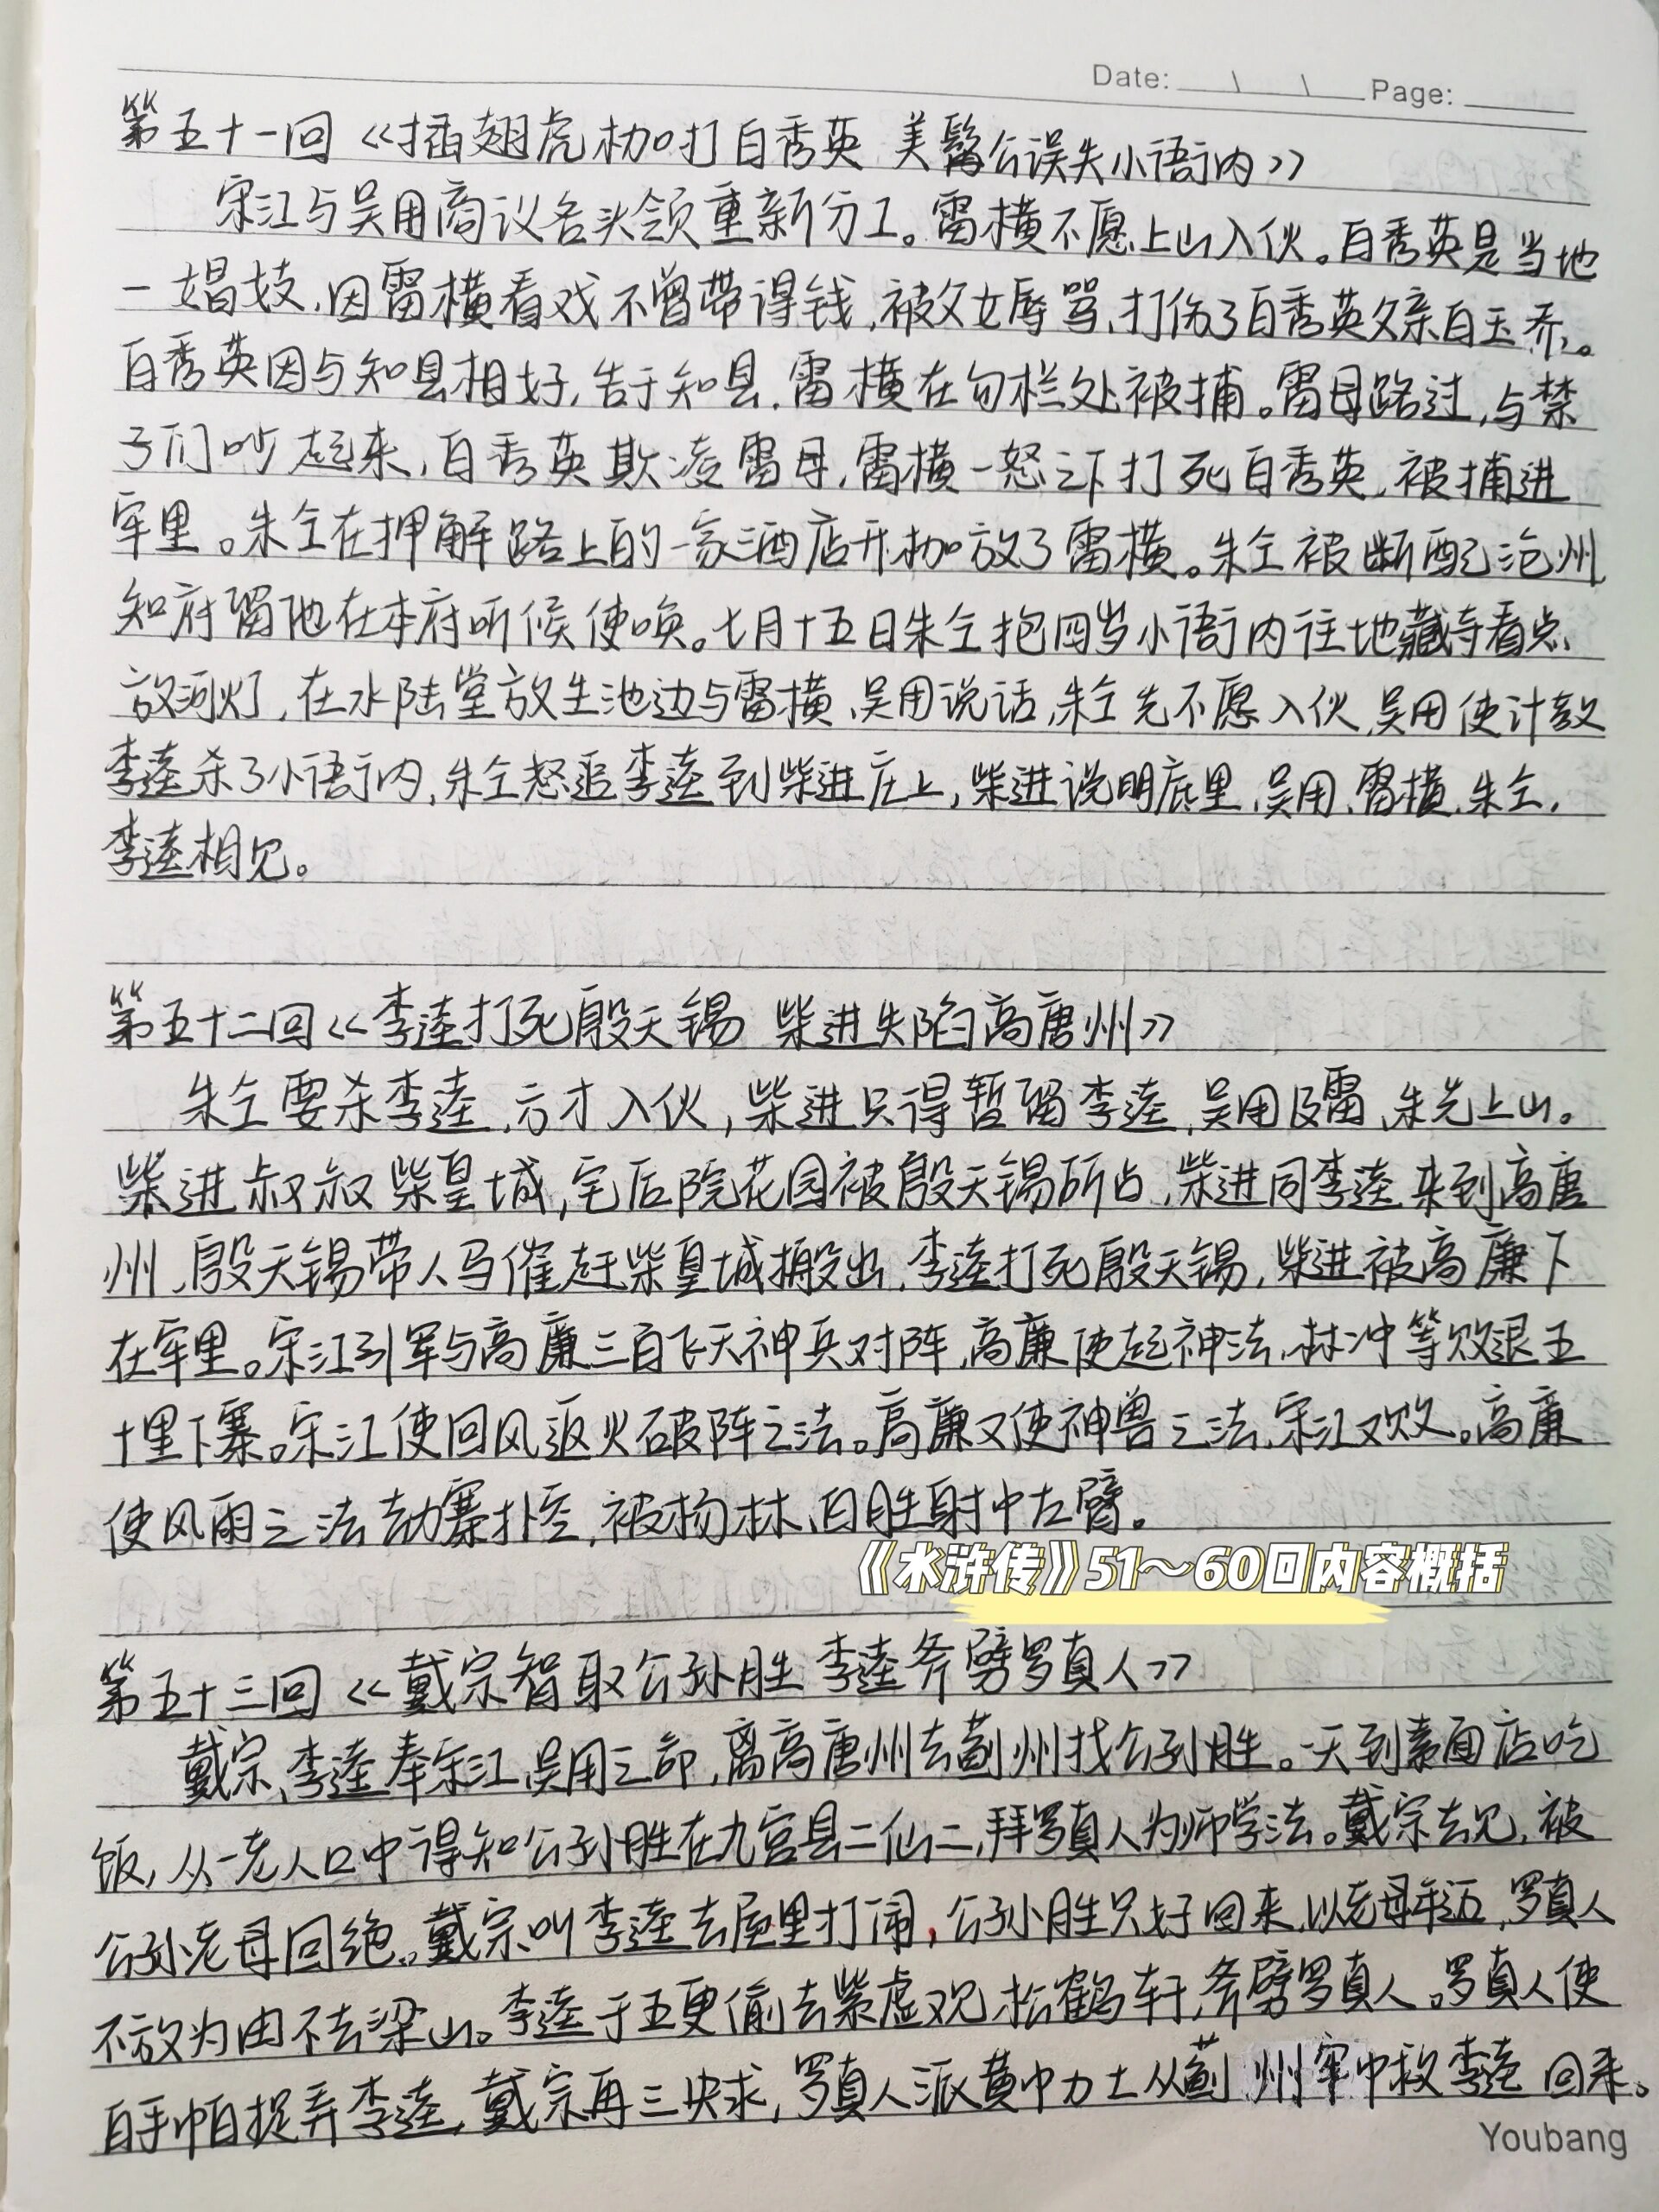 Date: \ \ Page:
第五十一回《插翅虎枷打白秀英 美髯公误失小衙内》
宋江与吴用商议各头领重新分工。雷横不愿上山入伙。白秀英是当地
一娼妓,因雷横看戏不曾带得钱,被父女辱骂,打伤了白秀英父亲白玉乔。
白秀英因与知县相好,告于知县,雷横在勾栏处被捕。雷母路过,与禁
子们吵起来,白秀英欺凌雷母,雷横一怒之下打死白秀英,被捕进
牢里。朱仝在押解路上的一家酒店开枷放了雷横。朱仝被断配沧州,
知府留他在本府听候使唤。七月十五日朱仝抱四岁小衙内往地藏寺看点
放河灯,在水陆堂放生池边与雷横、吴用说话,朱仝先不愿入伙,吴用使计教
李逵杀了小衙内,朱仝怒追李逵到柴进庄上,柴进说明底里,吴用、雷横、朱仝、
李逵相见。
第五十二回《李逵打死殷天锡 柴进失陷高唐州》
朱仝要杀李逵,方才入伙,柴进只得暂留李逵,吴用及雷、朱先上山。
柴进叔叔柴皇城,宅后院花园被殷天锡所占,柴进同李逵来到高唐
州,殷天锡带人马催赶柴皇城搬出,李逵打死殷天锡,柴进被高廉下
在牢里。宋江引军与高廉三百飞天神兵对阵,高廉使起神法,林冲等败退五
十里下寨。宋江使回风返火破阵之法。高廉又使神兽之法,宋江又败。高廉
使风雨之法劫寨扑空,被杨林、白胜射中左臂。
《水浒传》51～60回内容概括
第五十三回《戴宗智取公孙胜 李逵斧劈罗真人》
戴宗、李逵奉宋江、吴用之命,离高唐州去蓟州找公孙胜。一天到素面店吃
饭,从一老人口中得知公孙胜在九宫县二仙二,拜罗真人为师学法。戴宗去见,被
公孙老母回绝。戴宗叫李逵去屋里打闹,公孙胜只好回来,以老母年迈,罗真人
不放为由不去梁山。李逵于五更偷去紫虚观松鹤轩,斧劈罗真人。罗真人使
白手帕捉弄李逵,戴宗再三央求,罗真人派黄巾力士从蓟州牢中救李逵回来。
Youbang